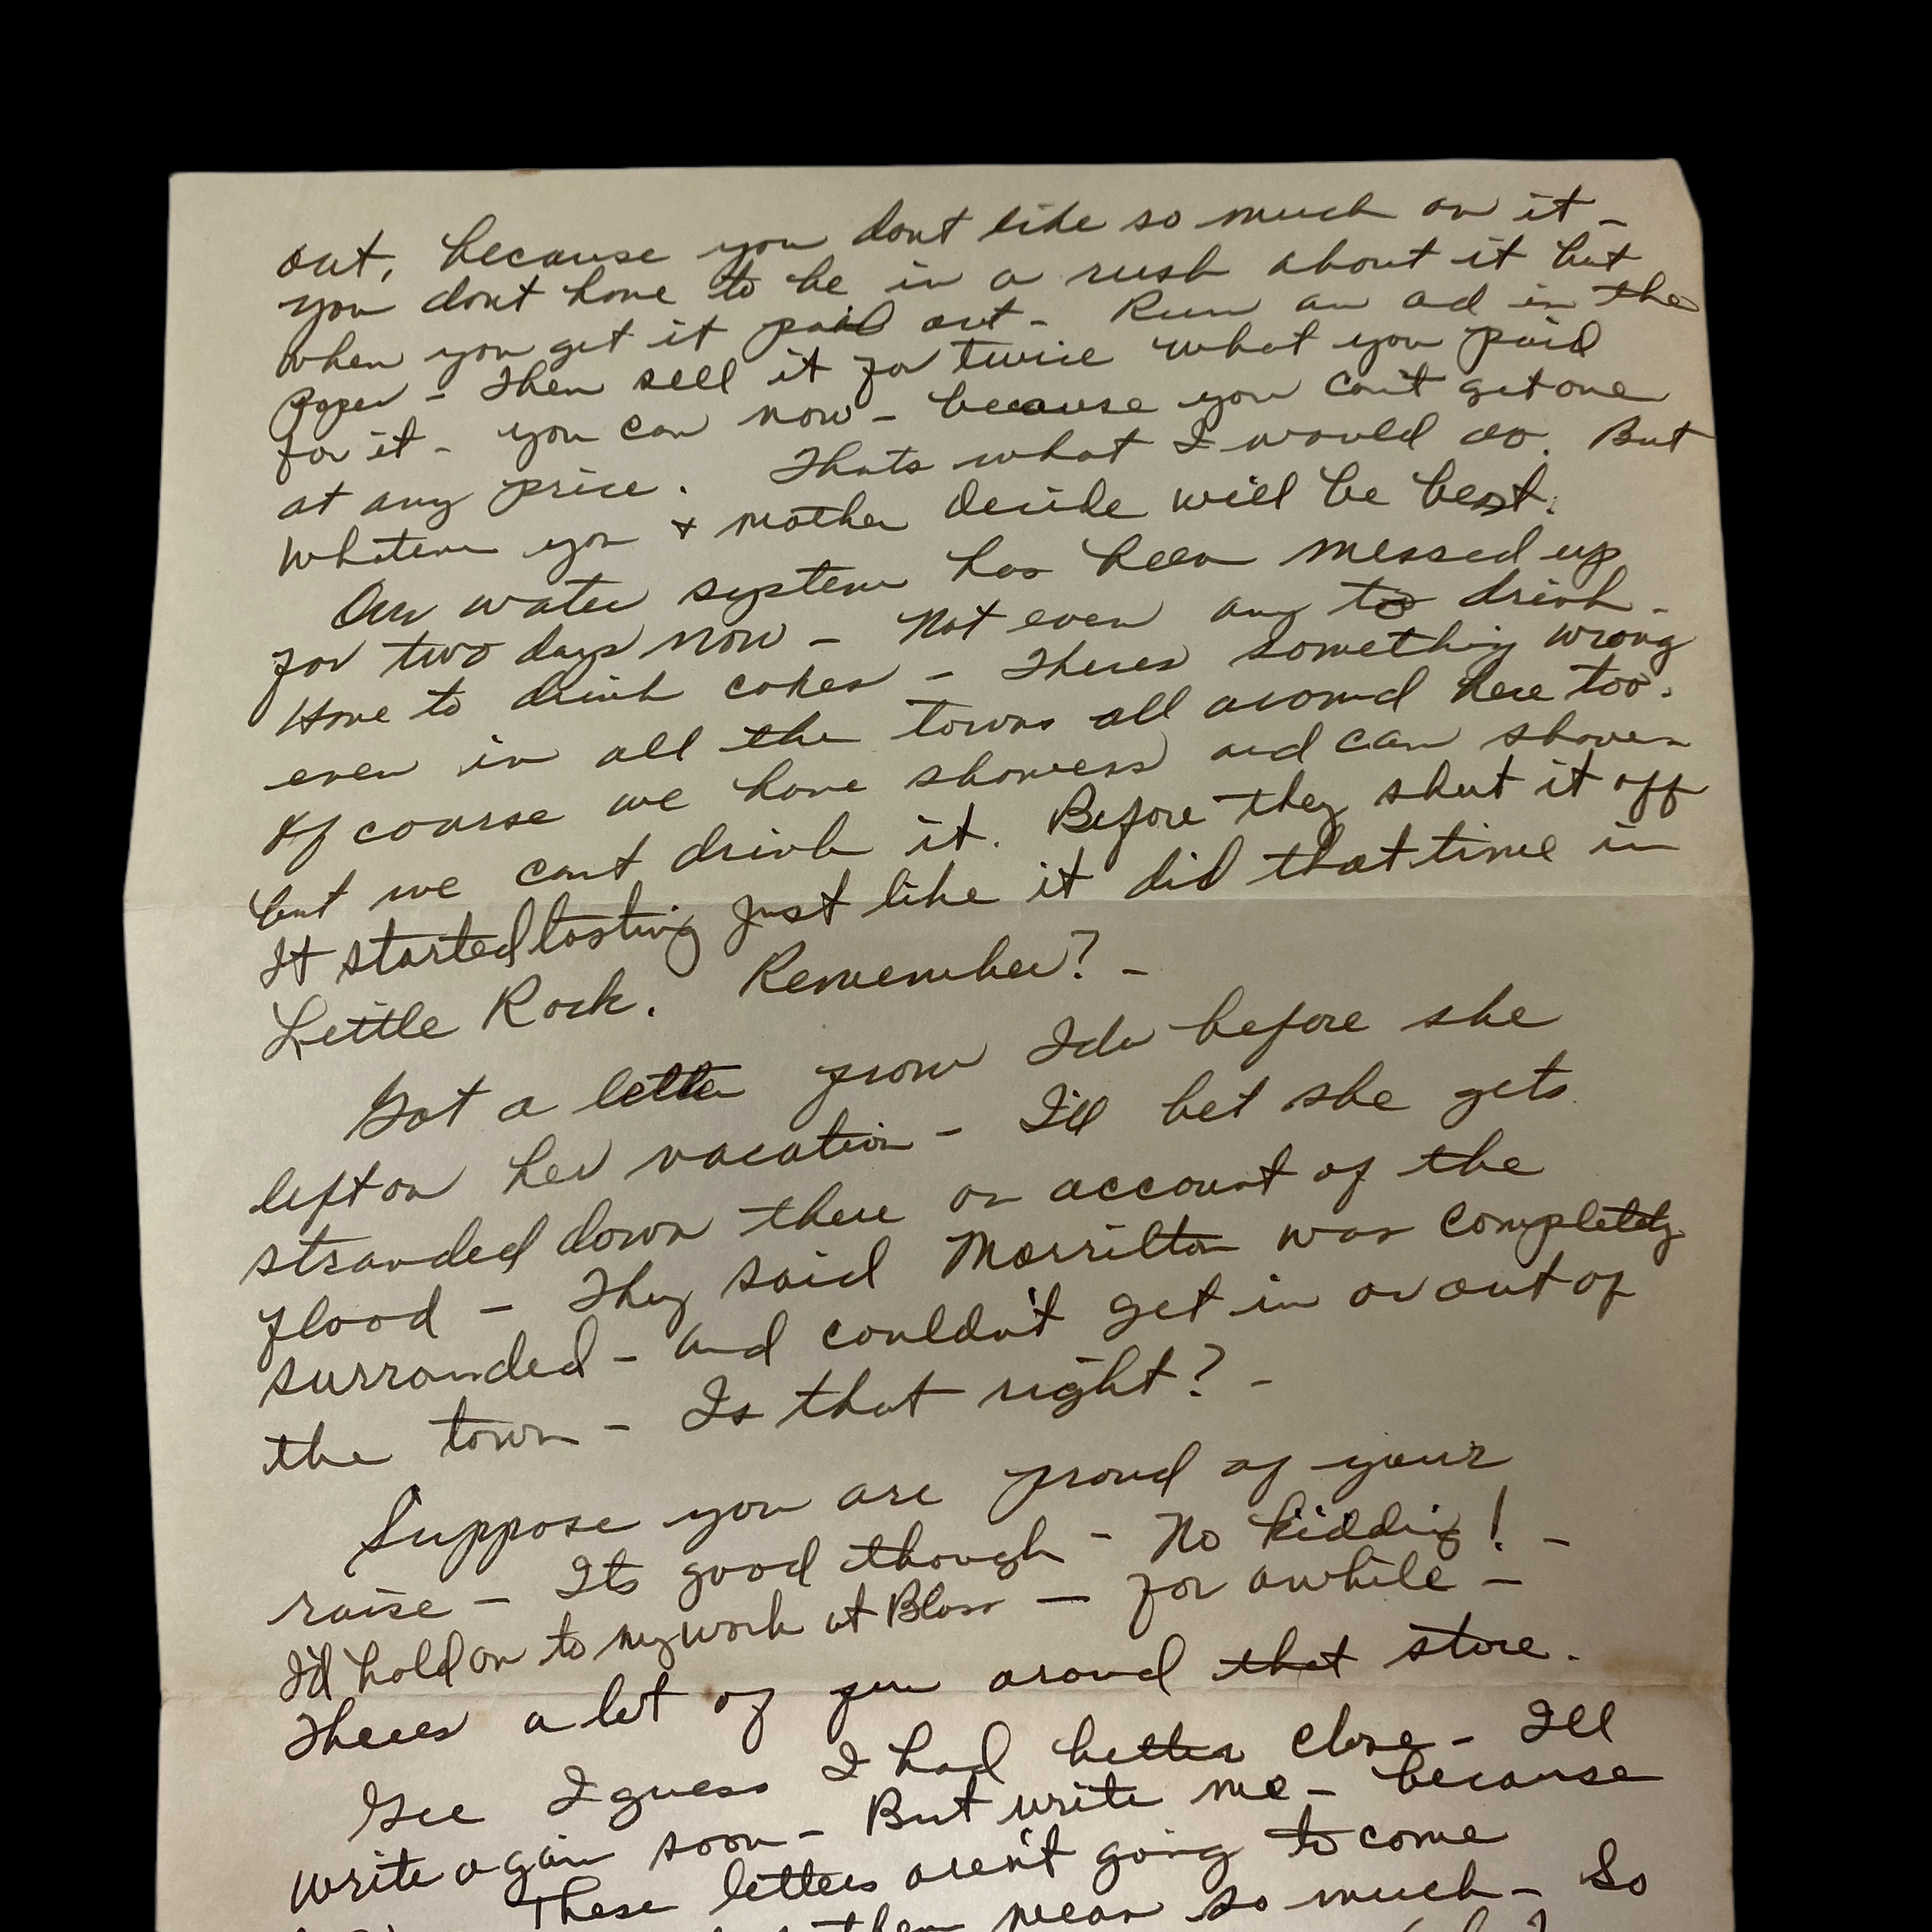 out, because you dont like so much on it -
you dont have to be in a rush about it but
when you get it paid out - Run an ad in the
Paper - Then sell it for twice what you paid
for it - you can now - because you can't get one
at any price. Thats what I would do. But
whatever you & mother decide will be best.
Our water system has been messed up
for two days now - Not even any to drink -
Have to drink cokes - Theres something wrong
even in all the towns all around here too.
Of course we have showers and can shower
but we cant drink it. Before they shut it off
It started tasting just like it did that time in
Little Rock. Remember? -
Got a letter from Ida before she
left on her vacation - I'll bet she gets
stranded down there on account of the
flood - They said Morrilton was completely
surronded - and couldn't get in or out of
the town - Is that right? -
Suppose you are proud of your
raise - Its good though - No kidding! -
I'd hold on to my work at Blass - for awhile -
Theres a lot of fun around that store.
Gee I guess I had better close - I'll
write again soon - But write me - because
These letters aren't going to come
them mean so much - So